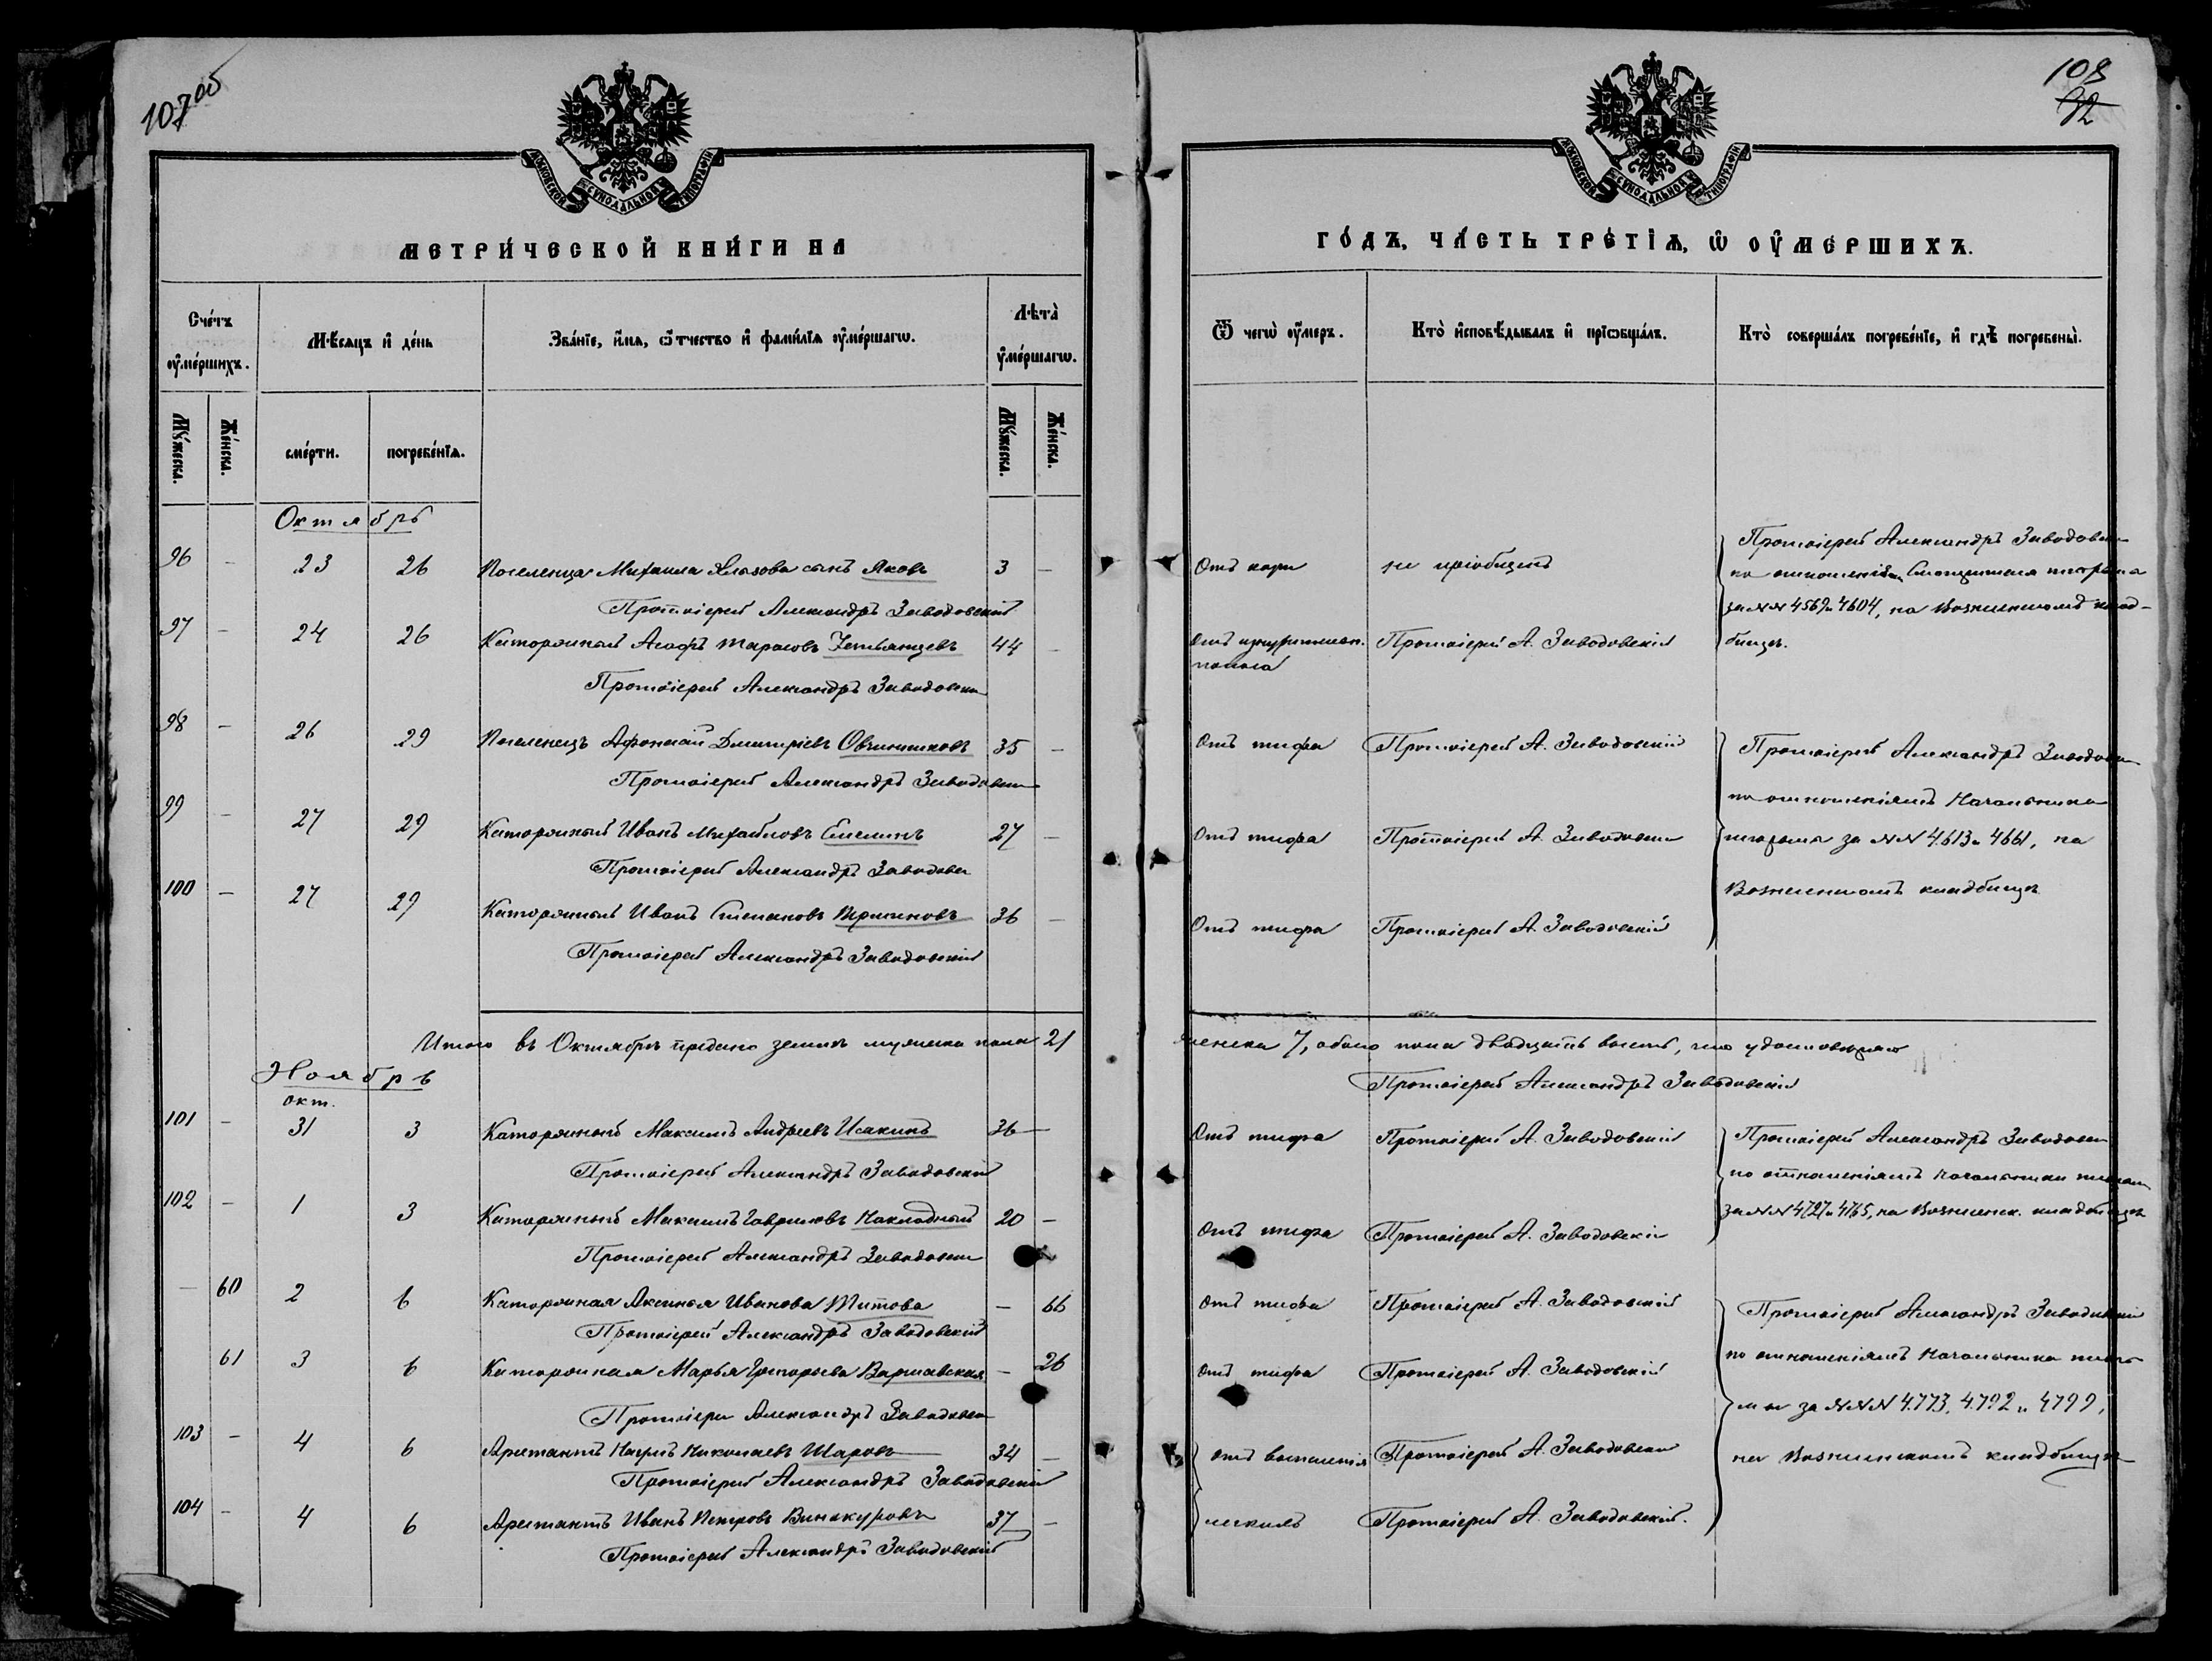 107об
МОСКОВСКОЙ СУНОДАЛЬНОЙ ТИПОГРАФІИ
МЕТРИ́ЧЕСКОЙ КНИ́ГИ НА
Сче́тъ ᲂу҆ме́ршихъ.
Мѣ́сяцъ и҆ де́нь
Зва́нїе, и҆́мѧ, ѻ҆́тчество и҆ фамѝлїѧ ᲂу҆ме́ршагѡ.
Лѣ́та ᲂу҆ме́ршагѡ.
Му́жеска.
Же́нска.
сме́рти.
погребе́нїѧ.
Му́жеска.
Же́нска.
Октябрь
96 - 23 26 Поселенца Михаила сынъ Яковъ 3 -
Протоіерей Александръ Заводовскій
97 - 24 26 Каторжный Тарасовъ 44 -
Протоіерей Александръ Заводовскій
98 - 26 29 Поселенецъ Афонасій Дмитріевъ Овчинниковъ 35 -
Протоіерей Александръ Заводовскій
99 - 27 29 Каторжный Иванъ Михайловъ Емелинъ 27 -
Протоіерей Александръ Заводовскій
100 - 27 29 Каторжный Иванъ Степановъ 36 -
Протоіерей Александръ Заводовскій
Итого въ Октябрѣ предано землѣ мужеска пола 21
Ноябрь
окт.
101 - 31 3 Каторжный Максимъ Андреевъ Исакинъ 36 -
Протоіерей Александръ Заводовскій
102 - 1 3 Каторжный Максимъ Гавриловъ Накладный 20 -
Протоіерей Александръ Заводовскій
- 60 2 6 Каторжная Аксинья Иванова Титова - 66
Протоіерей Александръ Заводовскій
61 3 6 Каторжная Марья Григорьева Варшавская - 26
Протоіерей Александръ Заводовскій
103 - 4 6 Арестантъ Наумъ Николаевъ Шаровъ 34 -
Протоіерей Александръ Заводовскій
104 - 4 6 Арестантъ Иванъ Петровъ Винокуровъ 37 -
Протоіерей Александръ Заводовскій
108
92
МОСКОВСКОЙ СУНОДАЛЬНОЙ ТИПОГРАФІИ
ГО́ДЪ, ЧА́СТЬ ТРЕ́ТІѦ, Ѡ҆ ОУ҆МЕ́РШИХЪ.
Ѿ чегѡ̀ ᲂу҆́меръ.
Кто̀ и҆сповѣ́дывалъ и҆ прїѡбща́лъ.
Кто̀ соверша́лъ погребе́нїе, и҆ гдѣ̀ погребены̀.
Отъ кори не пріобщенъ
Протоіерей Александръ Заводовскій
по отношеніямъ Смотрителя тюрьмы
за NN 4569 и 4604, на Вознесенскомъ клад-
бищѣ.
Отъ
поноса
Протоіерей А. Заводовскій
Отъ тифа Протоіерей А. Заводовскій
Протоіерей Александръ Заводовскій
по отношеніямъ Начальника
тюрьмы за NN 4613 и 4661, на
Вознесенскомъ кладбищѣ
Отъ тифа Протоіерей А. Заводовскій
Отъ тифа Протоіерей А. Заводовскій
женска 7, обоего пола двадцать восемь, что удостовѣряю
Протоіерей Александръ Заводовскій
Отъ тифа Протоіерей А. Заводовскій
Протоіерей Александръ Заводовскій
по отношеніямъ Начальника тюрьмы
за NN 4727 и 4765, на Вознесенск. кладбищѣ
Отъ тифа Протоіерей А. Заводовскій
Отъ тифа Протоіерей А. Заводовскій
Протоіерей Александръ Заводовскій
по отношеніямъ Начальника тюрь-
мы за NNN 4773, 4792 и 4799,
на Вознесенскомъ кладбищѣ
Отъ тифа Протоіерей А. Заводовскій
Отъ воспаленія Протоіерей А. Заводовскій
легкихъ Протоіерей А. Заводовскій.